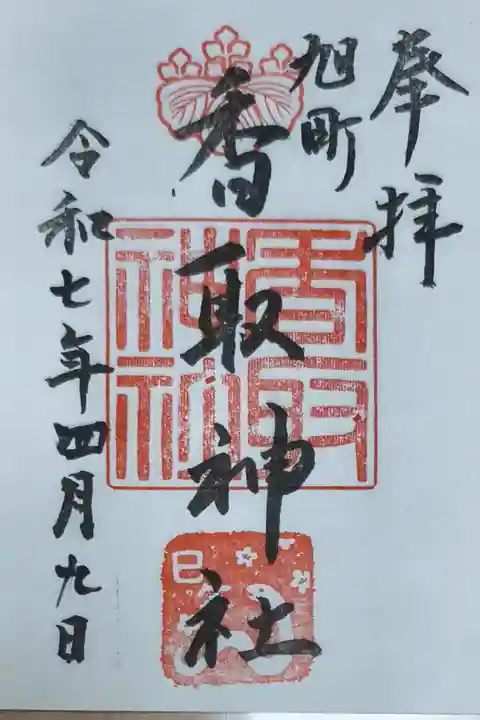 奉拝
旭町
香取神社
令和七年四月九日
香取神社
巳